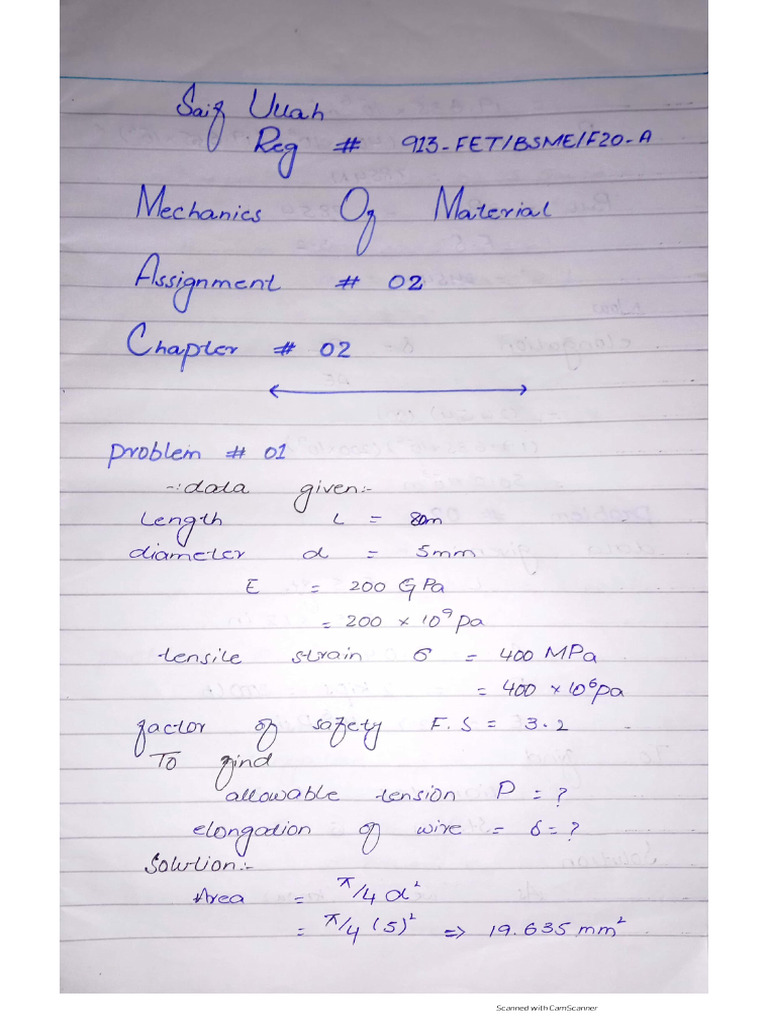 Saif Ullah
Reg # 913-FET/BSME/F20-A
Mechanics Of Material
Assignment # 02
Chapter # 02
Problem # 01
-:data given:-
Length L = 80m
diameter d = 5mm
E = 200 GPa
= 200 × 10⁹ pa
tensile strain σ = 400 MPa
= 400 × 10⁶ pa
factor of safety F.S = 3.2
To find
allowable tension P = ?
elongation of wire = δ = ?
Solution:-
Area = π/4 d²
= π/4 (5)² => 19.635 mm²
Scanned with CamScanner